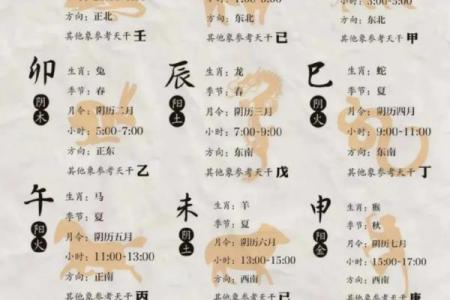 方向：正北
其他象参考天干壬
方向：东北
其他象参考天干己
方向：东北
其他象参考天干甲
卯
阴木
生肖：兔
季节：春
月令：阴历二月
小时：5:00-7:00
方向：正东
其他象参考天干乙
辰
阳土
生肖：龙
季节：春
月令：阴历三月
小时：7:00-9:00
方向：东南
其他象参考天干戊
巳
阴火
生肖：蛇
季节：夏
月令：阴历四月
小时：9:00-11:00
方向：东南
其他象参考天干丁
午
阳火
生肖：马
季节：夏
月令：阴历五月
小时：11:00-13:00
方向：正南
其他象参考天干丙
未
阴土
生肖：羊
季节：夏
月令：阴历六月
小时：13:00-15:00
方向：西南
其他象参考天干己
申
阳金
生肖：猴
季节：秋
月令：阴历七月
小时：15:00-17:00
方向：西南
其他象参考天干庚